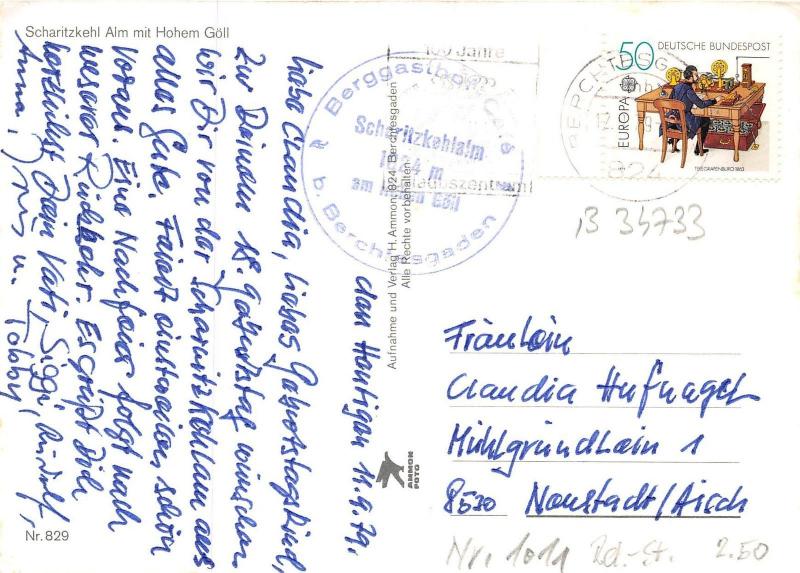 Scharitzkehl Alm mit Hohem Göll
den heutigen 11.9.79.
Liebe Claudia, liebes Geburtstagskind,
zu Deinem 18. Geburtstag wünschen
wir Dir von der Scharitzkehlalm aus
alles Gute. Feiert einstweilen schön
voraus. Eine Nachfeier folgt nach
unserer Rückkehr. Es grüßt Dich
herzlichst Dein Vati, Siggi, Rudolf,
Anna, u. Tobby
Nr. 829
Aufnahme und Verlag H. Ammon, 824 Berchtesgaden
Alle Rechte vorbehalten
AMMON
FOTO
Berggasthof Café
Scharitzkehlalm
1024 m
am Hohen Göll
b. Berchtesgaden
100 Jahre
BERCHTESG
824
50 DEUTSCHE BUNDESPOST
EUROPA
TELEGRAFENBÜRO 1863
B 34733
Fräulein
Claudia Hufnagel
Mühlgrundlein 1
8530 Neustadt/Aisch
Nr. 1011 Rd.-St. 2.50